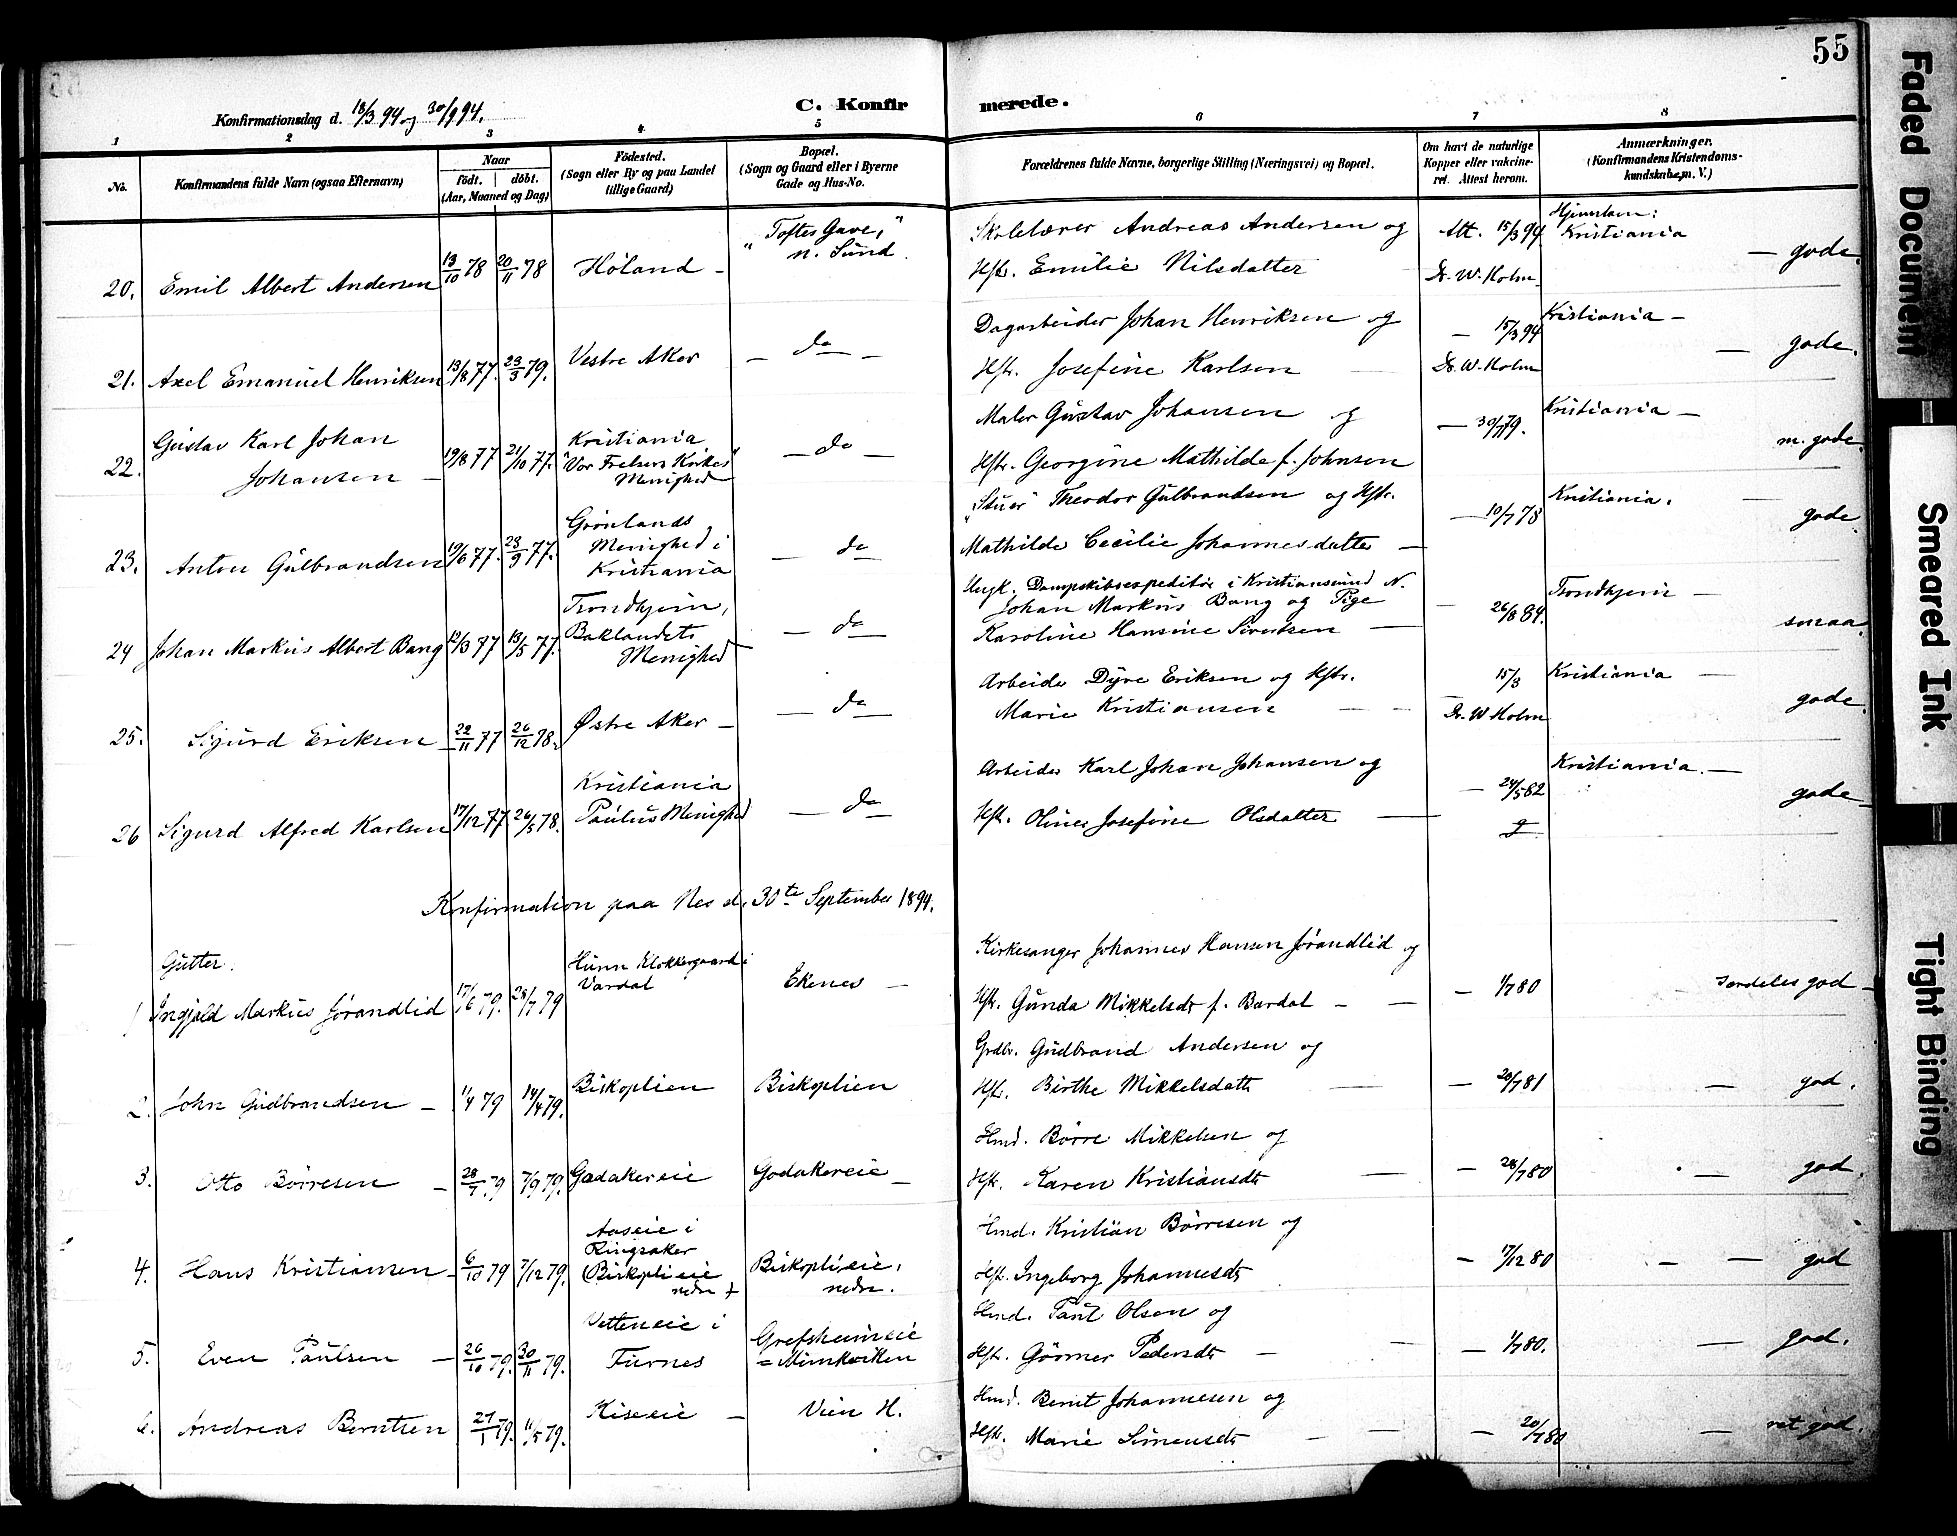 55
Konfirmationsdag d. 18/3 94 og 30/9 94.
C. Konfirmerede.
1 2 3 4 5 6 7 8
No.
Konfirmandens fulde Navn (ogsaa Efternavn)
Naar
födt. döbt.
(Aar, Maaned og Dag)
Födested.
(Sogn eller By og paa Landet
tillige Gaard)
Bopæl.
(Sogn og Gaard eller i Byerne
Gade og Hus-No.
Forældrenes fulde Navne, borgerlige Stilling (Næringsvei) og Bopæl.
Om havt de naturlige
Kopper eller vakcine-
ret. Attest herom.
Anmærkninger.
(Konfirmandens Kristendoms-
kundskab, m. V.)
20. Emil Albert Andersen 13/10 78 20/11 78 Höland -
"Toftes Gave,"
n. Sund.
Skolelærer Andreas Andersen og
Hst. Emilie Nilsdatter
Att. 15/3 94
Dr. W. Holm
Hjemstavn:
Kristiania
- gode.
21. Axel Emanuel Henriksen 13/8 77. 23/3 79. Vestre Aker - do -
Dagarbeider Johan Henriksen og
Hst. Josefine Karlsen
- 15/3 94
Dr. W. Holm
Kristiania -
- gode.
22. Gustav Karl Johan
Johansen -
19/8 77 21/10 77.
Kristiania
"Vor Frelsers Kirkes"
Menighed
- do -
Maler Gustav Johansen og
Hst. Georgine Mathilde f. Johnsen
- 30/ 79.
Kristiania -
m. gode.
23. Anton Gulbrandsen 19/6 77. 23/9 77.
Grönlands
Menighed i
Kristiania
- do
"Stuer" Theodor Gulbrandsen og Hst.
Mathilde Cecilie Johannesdatter -
- 10/7 78
Kristiania. -
gode.
24 Johan Markus Albert Bang 12/3 77 13/5 77.
Trondhjem,
Baklandets
Menighed
- do
Ungk. Dampskibsexpeditör i Kristianssund N.
Johan Markus Bang og Pige
Karoline Hansine Sivertsen -
- 26/8 84.
Trondhjem -
smaa.
25. Sigurd Eriksen 22/11 77 26/12 78. Østre Aker - - do
Arbeider Dyre Eriksen og Hst.
Marie Kristiansen - -
15/3
Dr. W Holm
Kristiania -
gode.
26 Sigurd Alfred Karlsen 17/12 77 26/5 78.
Kristiania
Paulus Menighed
- do
Arbeider Karl Johan Johansen og
Hst. Oline Josefine Olsdatter -
- 24/5 82
Kristiania. -
gode
Konfirmation paa Nes d. 30te September 1894.
Gutter.
1 Ingjald Markus Jørandlid 17/6 79. 28/7 79
Hunn Klokkergaard i
Vardal
Ekenes -
Kirkesanger Johannes Hansen Jørandlid og
Hst. Gunda Mikkelsdt f. Bardal - -
- 1/7 80
særdeles god -
2. John Gudbrandsen - 1/4 79 14/4 79. Biskoplien Biskoplien
Grdbr. Gudbrand Andersen og
Hst. Birthe Mikkelsdatt -
- 20/7 81
- god.
3. Otto Börresen - 28/7 79 7/9 79. Godakereie Godakereie -
Hmd. Börre Mikkelsen og
Hst. Karen Kristiansdt -
- 28/7 80
god.
4. Hans Kristiansen - 6/10 79 7/12 79.
Aaseie i
Ringsaker
(Biskoplieie
nedre +
Biskoplieie,
nedre.
Hmd. Kristian Börresen og
Hst. Ingeborg Johannesdt
- 17/12 80
- - god
5. Even Paulsen - 26/10 79. 30/11 79.
Vetteneie i
Furnes
Grefsheimeie
= Minkviken
Hmd. Paul Olsen og
Hst. Gørner Pedersdt -
- 1/7 80.
- god.
6. Andreas Berntsen 27/1 79. 11/5 79. Kiseeie - Vien H.
Hmd. Bernt Johannesen og
Hst. Marie Simensdt - -
- 20/7 80
- ret god.
Faded Document
Smeared Ink
Tight Binding